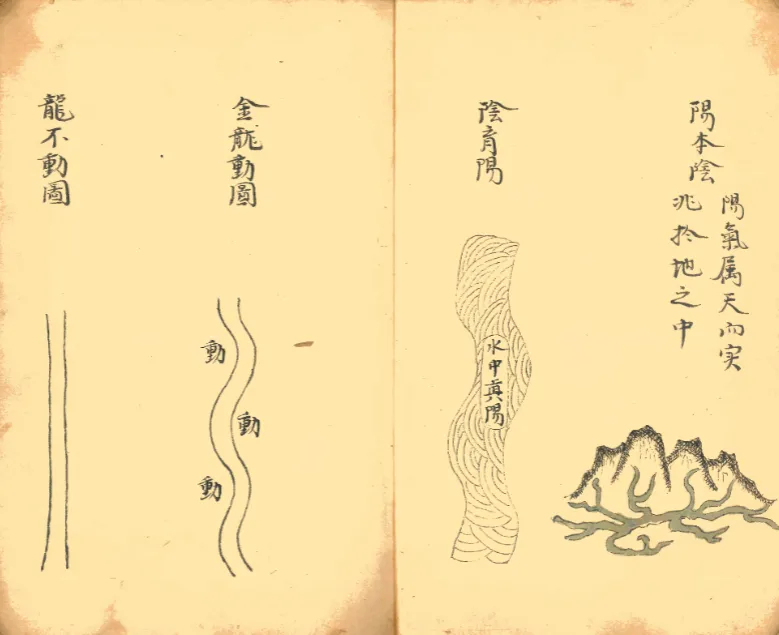 陽本陰
陽氣属天而实
兆於地之中
陰育陽
水中眞陽
金龍動圖
動
動
動
龍不動圖